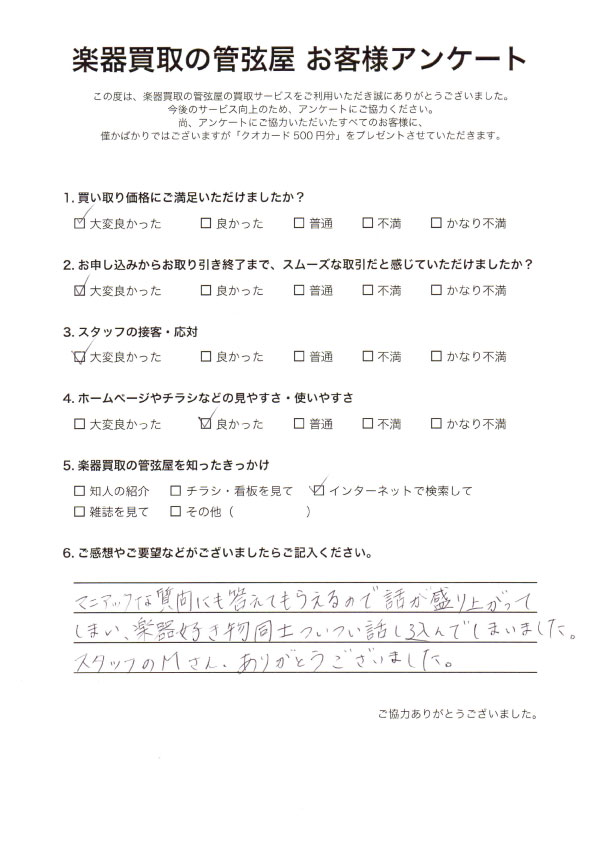 楽器買取の管弦屋 お客様アンケート
この度は、楽器買取の管弦屋の買取サービスをご利用いただき誠にありがとうございました。
今後のサービス向上のため、アンケートにご協力ください。
尚、アンケートにご協力いただいたすべてのお客様に、
僅かばかりではございますが「クオカード500円分」をプレゼントさせていただきます。
1. 買い取り価格にご満足いただけましたか？
☑ 大変良かった □ 良かった □ 普通 □ 不満 □ かなり不満
2. お申し込みからお取り引き終了まで、スムーズな取引だと感じていただけましたか？
☑ 大変良かった □ 良かった □ 普通 □ 不満 □ かなり不満
3. スタッフの接客・応対
☑ 大変良かった □ 良かった □ 普通 □ 不満 □ かなり不満
4. ホームページやチラシなどの見やすさ・使いやすさ
□ 大変良かった ☑ 良かった □ 普通 □ 不満 □ かなり不満
5. 楽器買取の管弦屋を知ったきっかけ
□ 知人の紹介 □ チラシ・看板を見て ☑ インターネットで検索して
□ 雑誌を見て □ その他（ ）
6. ご感想やご要望などがございましたらご記入ください。
マニアックな質問にも答えてもらえるので話が盛り上がって
しまい、楽器好き物同士ついつい話し込んでしまいました。
スタッフのMさん、ありがとうございました。
ご協力ありがとうございました。